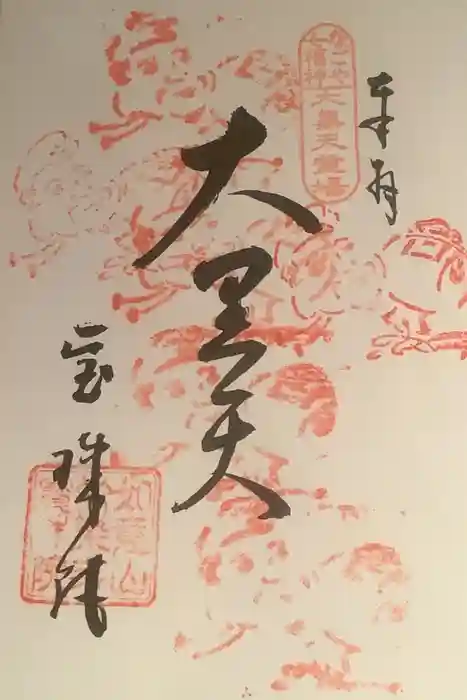 奉拝
七福神
大黒天霊場
大黒天
宝珠院